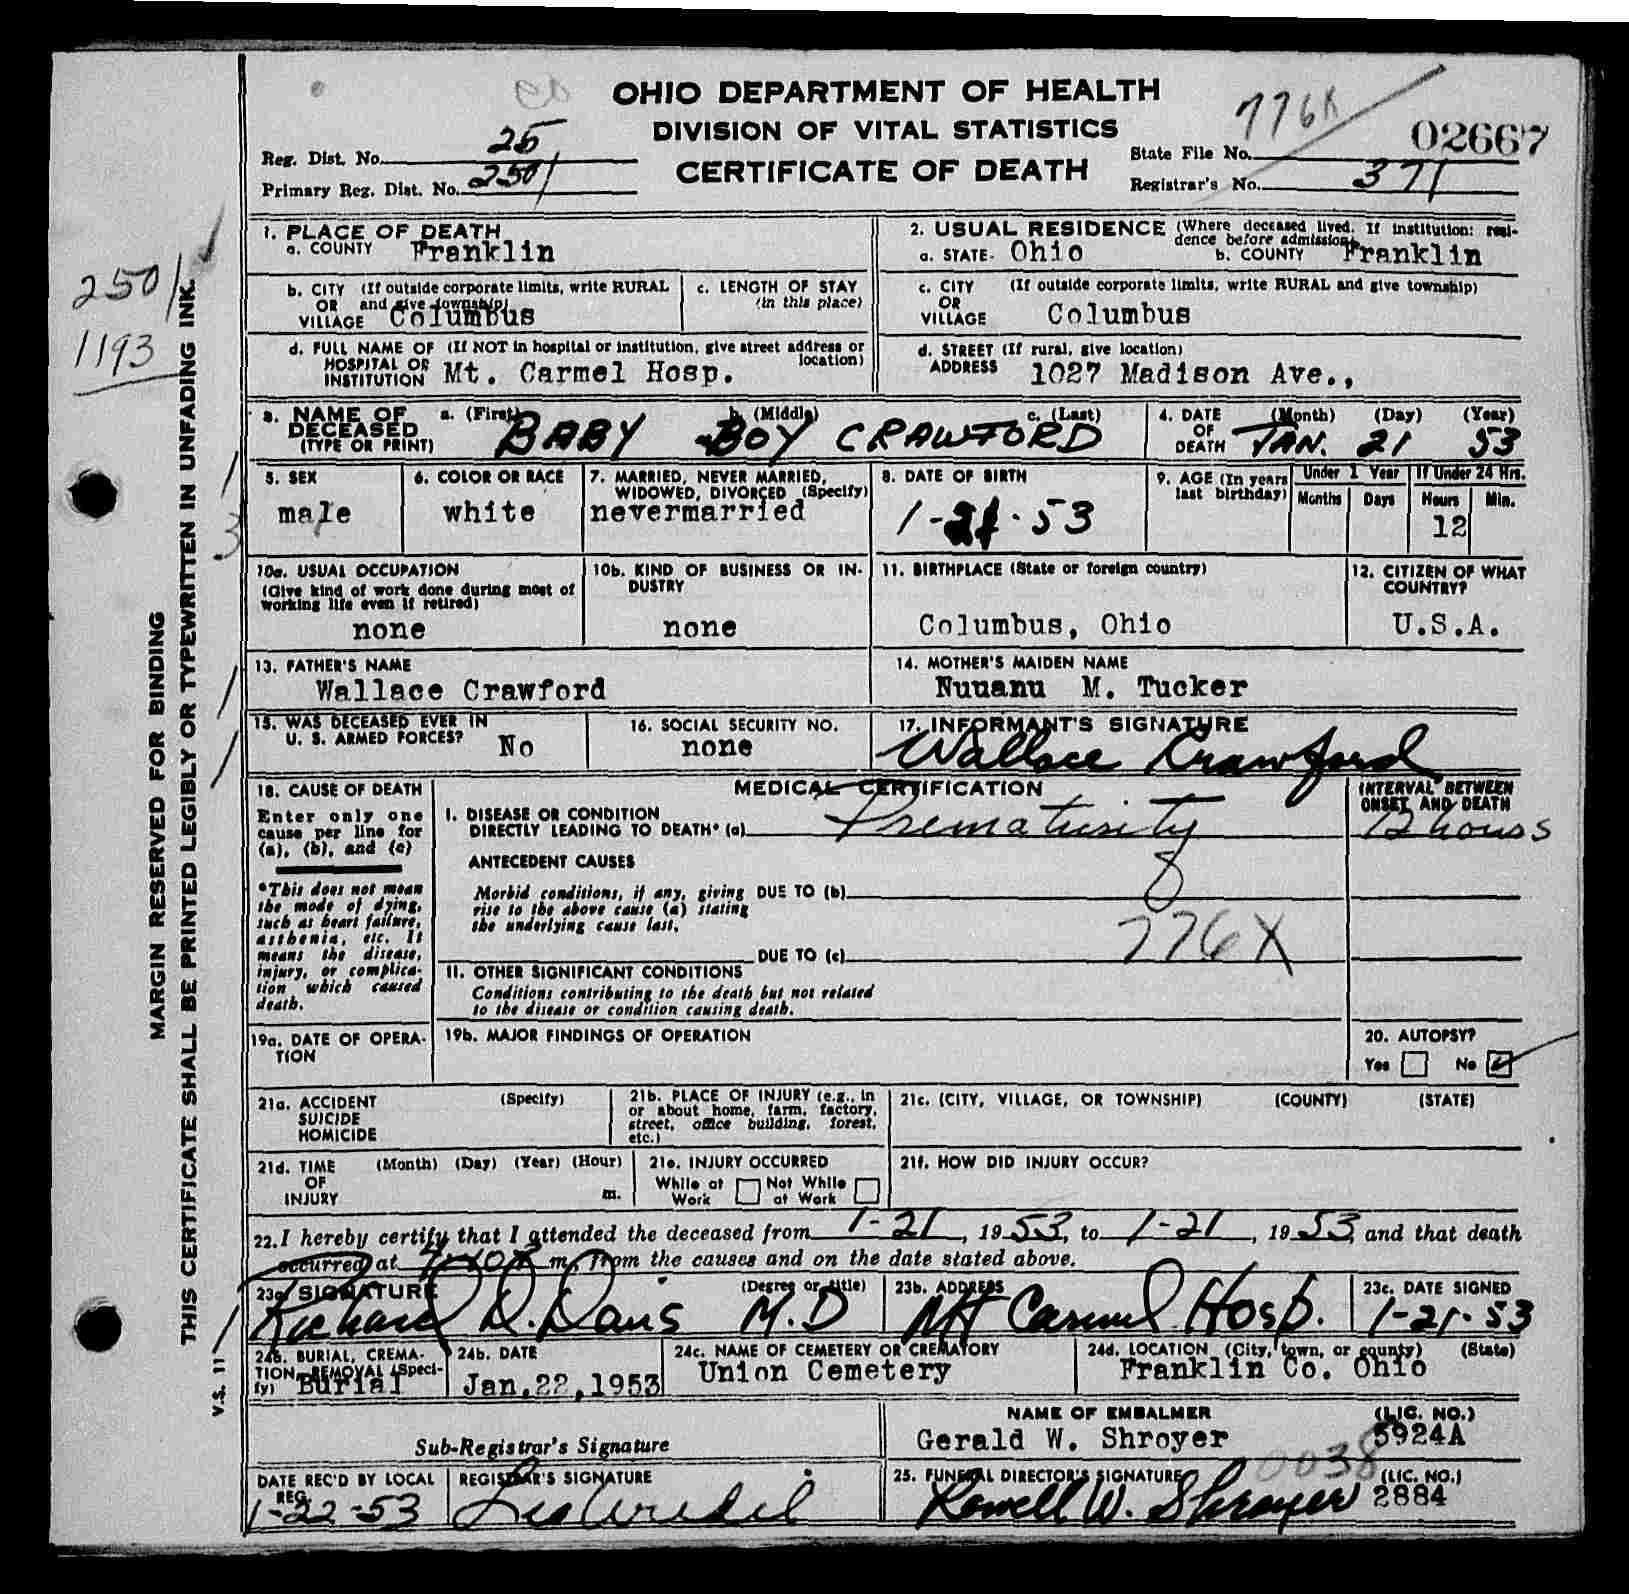 OHIO DEPARTMENT OF HEALTH
DIVISION OF VITAL STATISTICS
CERTIFICATE OF DEATH
Reg. Dist. No. 25
Primary Reg. Dist. No. 2501
776X
02667
State File No.
Registrar's No. 371
2501
1193
MARGIN RESERVED FOR BINDING
THIS CERTIFICATE SHALL BE PRINTED LEGIBLY OR TYPEWRITTEN IN UNFADING INK.
V.S. 11
3
1. PLACE OF DEATH
a. COUNTY Franklin
2. USUAL RESIDENCE (Where deceased lived. If institution: resi-
dence before admission)
a. STATE Ohio b. COUNTY Franklin
b. CITY (If outside corporate limits, write RURAL
OR and give township)
VILLAGE Columbus
c. LENGTH OF STAY
(in this place)
c. CITY (If outside corporate limits, write RURAL and give township)
OR
VILLAGE Columbus
d. FULL NAME OF (If NOT in hospital or institution, give street address or
HOSPITAL OR location)
INSTITUTION Mt. Carmel Hosp.
d. STREET (If rural, give location)
ADDRESS 1027 Madison Ave.,
3. NAME OF a. (First) b. (Middle) c. (Last)
DECEASED
(TYPE OR PRINT) BABY BOY CRAWFORD
4. DATE (Month) (Day) (Year)
OF
DEATH JAN. 21 53
5. SEX
male
6. COLOR OR RACE
white
7. MARRIED, NEVER MARRIED,
WIDOWED, DIVORCED (Specify)
nevermarried
8. DATE OF BIRTH
1-21-53
9. AGE (In years
last birthday)
Under 1 Year
Months Days
If Under 24 Hrs.
Hours Min.
12
10a. USUAL OCCUPATION
(Give kind of work done during most of
working life even if retired)
none
10b. KIND OF BUSINESS OR IN-
DUSTRY
none
11. BIRTHPLACE (State or foreign country)
Columbus, Ohio
12. CITIZEN OF WHAT
COUNTRY?
U.S.A.
13. FATHER'S NAME
Wallace Crawford
14. MOTHER'S MAIDEN NAME
Nuuanu M. Tucker
15. WAS DECEASED EVER IN
U. S. ARMED FORCES? No
16. SOCIAL SECURITY NO.
none
17. INFORMANT'S SIGNATURE
Wallace Crawford
18. CAUSE OF DEATH
Enter only one
cause per line for
(a), (b), and (c)
*This does not mean
the mode of dying,
such as heart failure,
asthenia, etc. It
means the disease,
injury, or complica-
tion which caused
death.
MEDICAL CERTIFICATION
I. DISEASE OR CONDITION
DIRECTLY LEADING TO DEATH* (a) Prematurity
ANTECEDENT CAUSES
8
Morbid conditions, if any, giving DUE TO (b)
rise to the above cause (a) stating
the underlying cause last.
776X
DUE TO (c)
II. OTHER SIGNIFICANT CONDITIONS
Conditions contributing to the death but not related
to the disease or condition causing death.
INTERVAL BETWEEN
ONSET AND DEATH
12 hours
19a. DATE OF OPERA-
TION
19b. MAJOR FINDINGS OF OPERATION
20. AUTOPSY?
Yes No
21a. ACCIDENT (Specify)
SUICIDE
HOMICIDE
21b. PLACE OF INJURY (e.g., in
or about home, farm, factory,
street, office building, forest,
etc.)
21c. (CITY, VILLAGE, OR TOWNSHIP) (COUNTY) (STATE)
21d. TIME (Month) (Day) (Year) (Hour)
OF
INJURY m.
21e. INJURY OCCURRED
While at Not While
Work at Work
21f. HOW DID INJURY OCCUR?
22. I hereby certify that I attended the deceased from 1-21, 1953, to 1-21, 1953, and that death
occurred at m., from the causes and on the date stated above.
23a. SIGNATURE (Degree or title)
Richard D. Davis M.D
23b. ADDRESS
Mt Carmel Hosp.
23c. DATE SIGNED
1-21-53
24a. BURIAL, CREMA-
TION, REMOVAL (Speci-
fy) Burial
24b. DATE
Jan,22,1953
24c. NAME OF CEMETERY OR CREMATORY
Union Cemetery
24d. LOCATION (City, town, or county) (State)
Franklin Co. Ohio
Sub-Registrar's Signature
NAME OF EMBALMER (LIC. NO.)
Gerald W. Shroyer 5924A
0038
DATE REC'D BY LOCAL
REG.
1-22-53
REGISTRAR'S SIGNATURE
25. FUNERAL DIRECTOR'S SIGNATURE (LIC. NO.)
Rowell W. Shroyer 2884